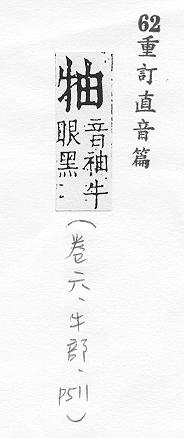 62重訂直音篇
牰
音袖牛
眼黑
(卷六、牛部、p511)